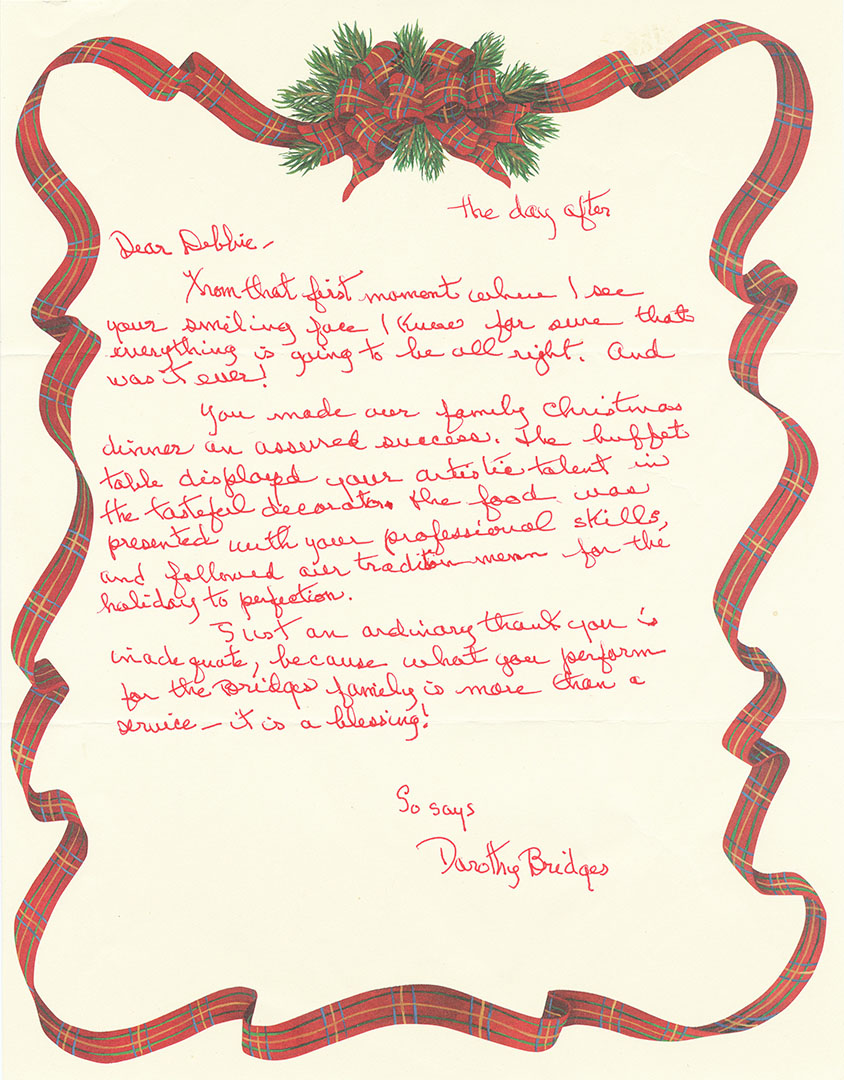 the day after
Dear Debbie -
From that first moment where I see
your smiling face I know for sure that
everything is going to be all right. And
was it ever!
You made our family Christmas
dinner an assured success. The buffet
table displayed your artistic talent in
the tasteful decorator. The food was
presented with your professional skills,
and followed our tradition menu for the
holiday to perfection.
Just an ordinary thank you is
inadequate, because what you perform
for the Bridges family is more than a
service - it is a blessing!
So says
Dorothy Bridges